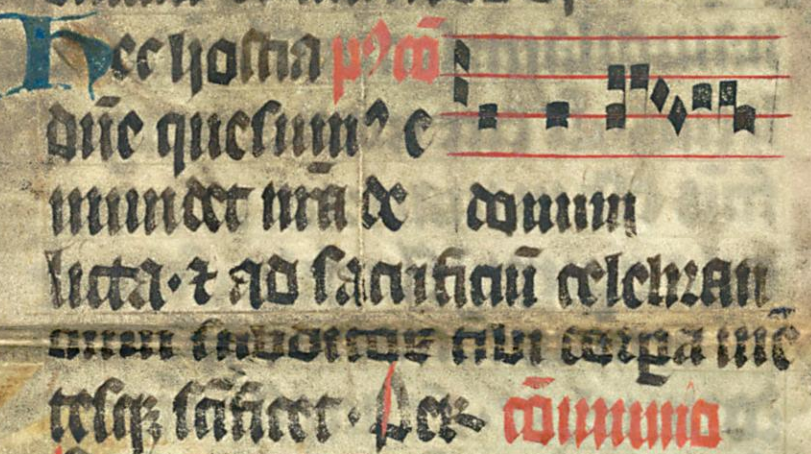 Hec hostia p9 cō
dn̄e quesum9 e
mundet nr̄a de domini
licta · ⁊ ad sacrificiū celebran
dum subditos tibi corpa mē
tesqꝫ sc̄ificet · Per cōmunio